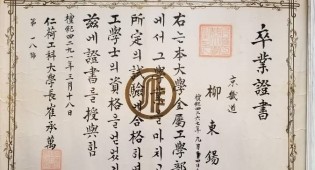 卒業證書
京畿道
柳東錫
檀紀四二六七年九月
右는本大學金屬工學部
에서그業을마치고
所定의試驗에合格하
工學士의資格을얻었
玆에證書를授與함
檀紀四二九一年三月十八日
仁荷工科大學長崔承萬
第一八号